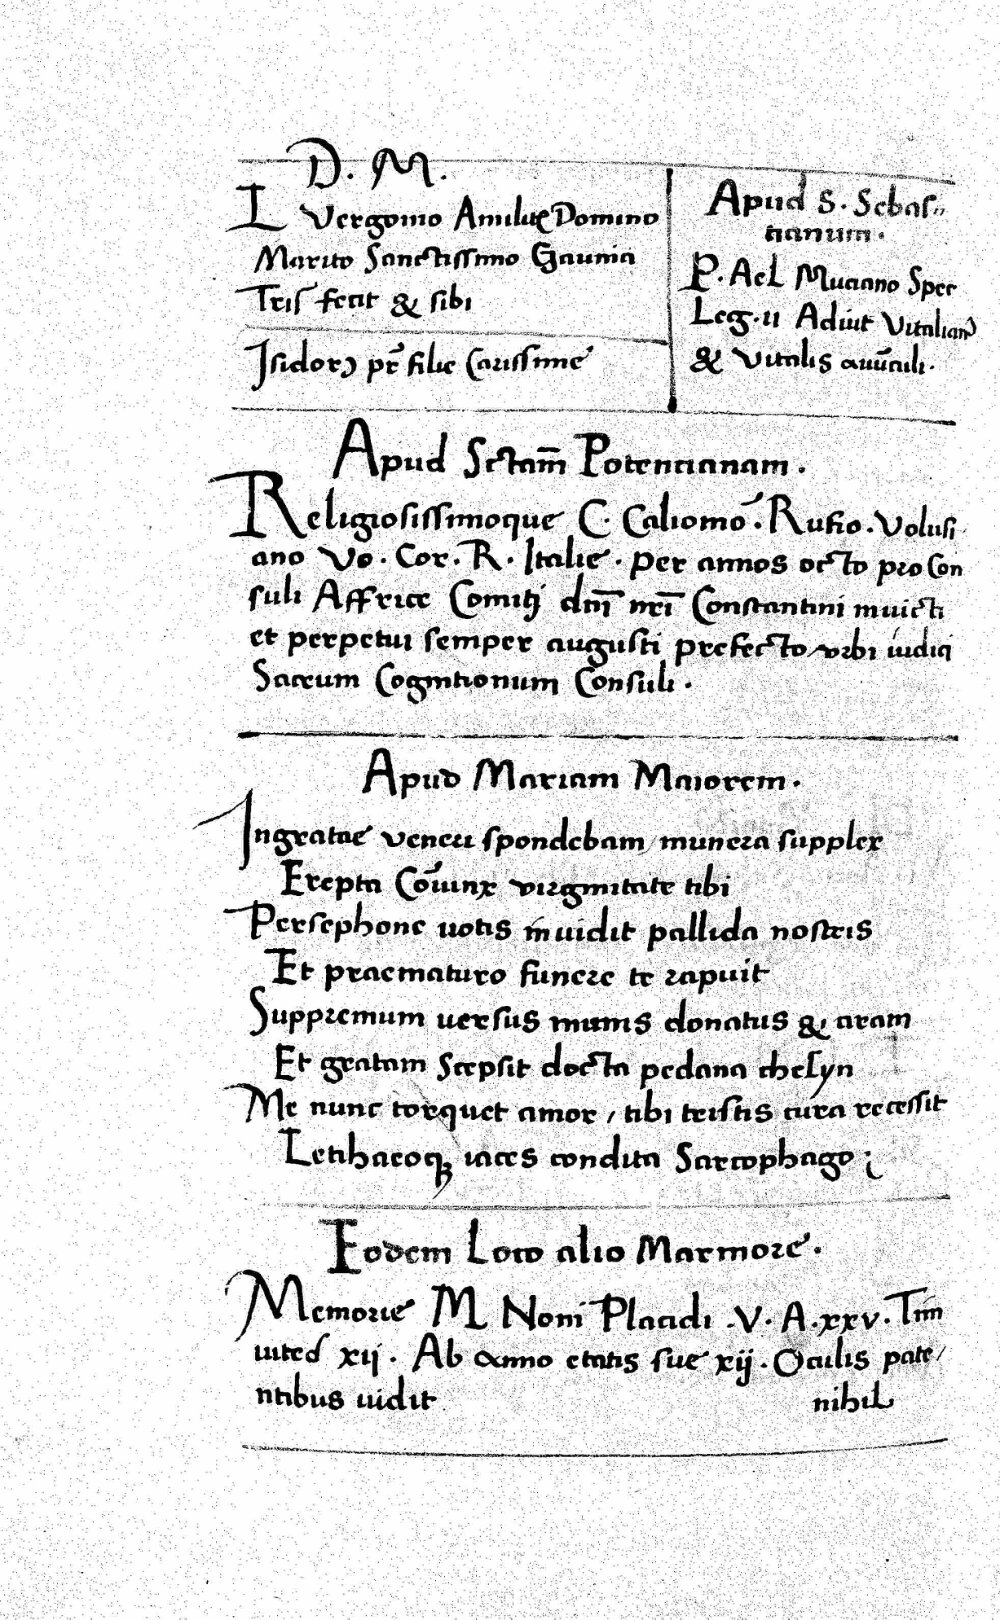 D. M.
L Vergonio Amilitę Domino
Marito Sanctissimo Gaunia
Tris fecit & sibi
Isidorꝰ pr̄ filie Carissime
Apud S. Sebas〃
tianum.
P. Ael Muciano Spec
Leg. II Adiut Vitalianꝰ
& Vitalis auūculi.
Apud Sctam̄ Potentianam.
Religiosissimoque C. Caliomo. Rufio. Volusi
ano Vo. Cor. R. Italie. per annos octo pro Con
suli Affrice Comitj dn̄i nr̄i Constantini inuicti
et perpetui semper augusti prefecto urbi iudici
Sacrum Cognitionum Consuli.
Apud Mariam Maiorem.
Ingratae veneri spondebam munera supplex
Erepta Cōiunx virginitate tibi
Persephone uotis inuidit pallida nostris
Et praematuro funere te rapuit
Suppremum uersus munus donatus & aram
Et gratam Scepsit docta pedana chelyn
Me nunc torquet amor / tibi tristis cura recessit
Lethaeoqꝫ iaces condita Sarcophago ;
Eodem Loco alio Marmore.
Memorie M Noni Placidi .V. A. xxv. Trin
uited xij. Ab anno etatis sue xij. Oculis pate/
ntibus uidit nihil